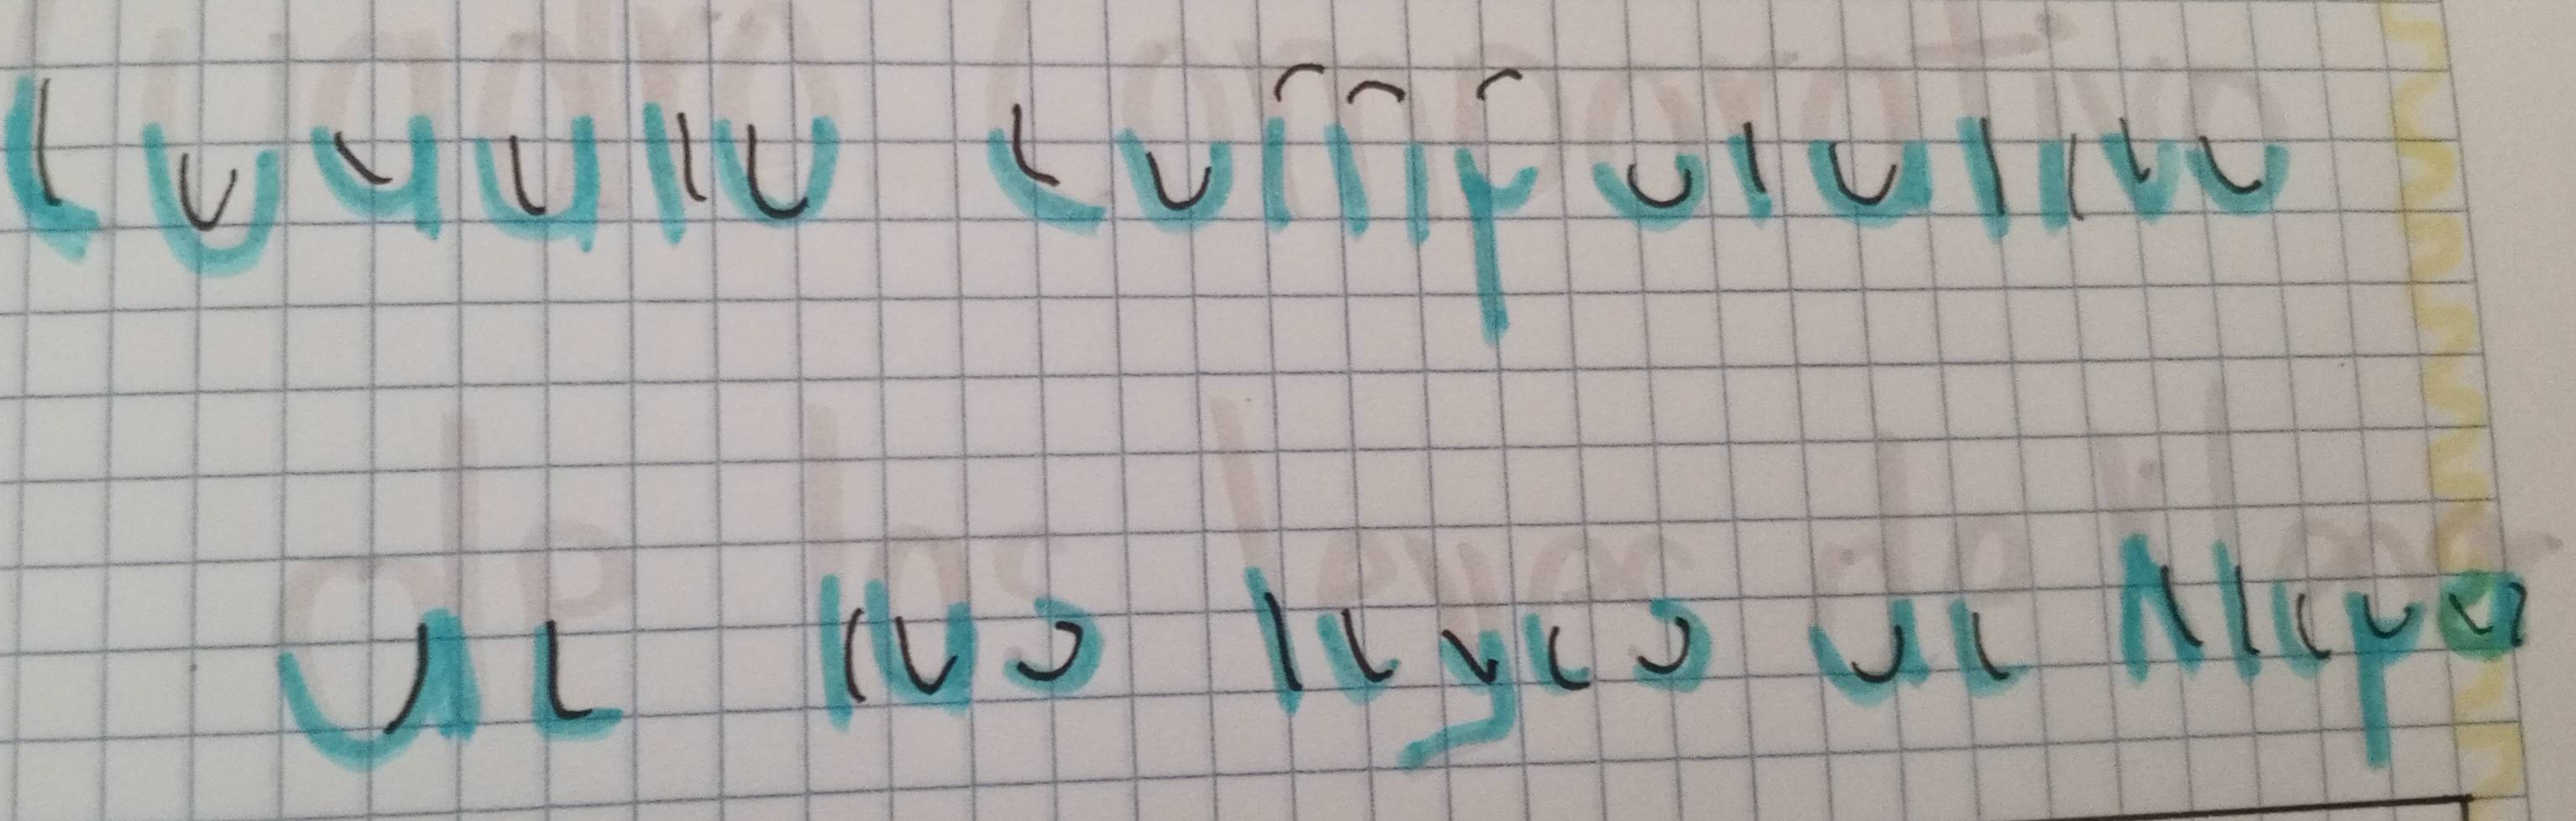 Cuadro Comparativo
de las leyes de